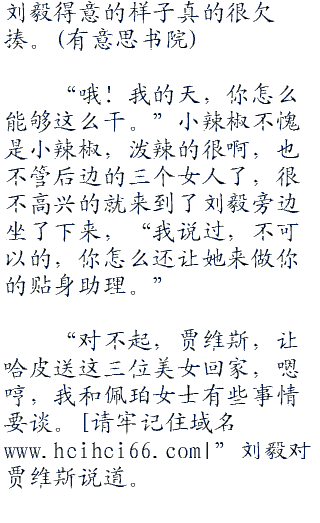 刘毅得意的样子真的很欠
揍。(有意思书院)
“哦！我的天，你怎么
能够这么干。”小辣椒不愧
是小辣椒，泼辣的很啊，也
不管后边的三个女人了，很
不高兴的就来到了刘毅旁边
坐了下来，“我说过，不可
以的，你怎么还让她来做你
的贴身助理。”
“对不起，贾维斯，让
哈皮送这三位美女回家，嗯
哼，我和佩珀女士有些事情
要谈。[请牢记住域名
www.hcihci66.com|”刘毅对
贾维斯说道。